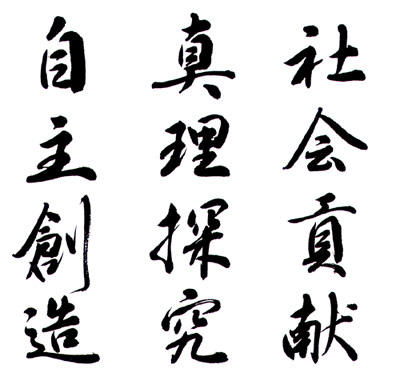 社会貢献
真理探究
自主創造